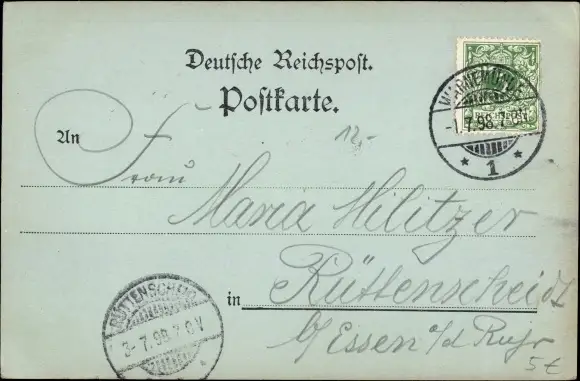 Deutsche Reichspost.
Postkarte.
WARNEMÜNDE
1.7.98.7.8V
* 1 *
12,-
An Frau
Maria Hilitzer
in Rüttenscheid
b/ Essen a/d Ruhr
RÜTTENSCHEID
3-7.98.7.8V
5€